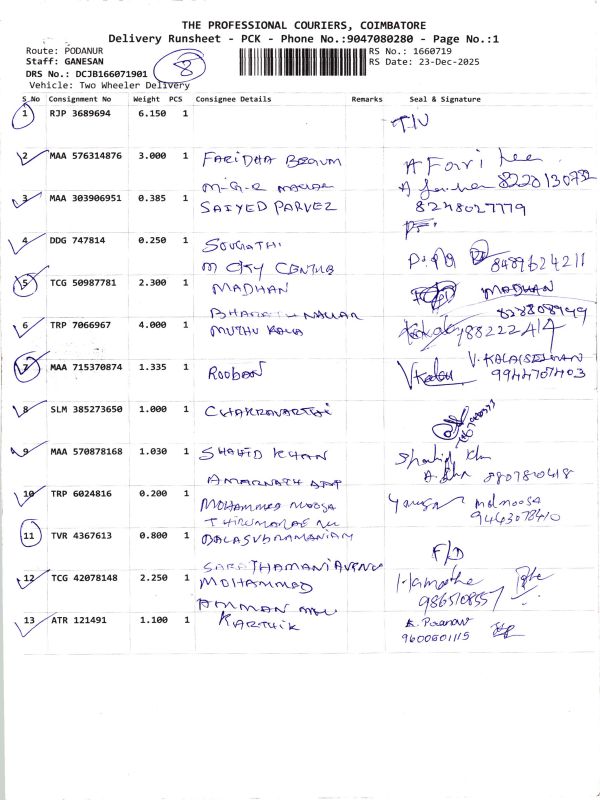 THE PROFESSIONAL COURIERS, COIMBATORE
Delivery Runsheet - PCK - Phone No.:9047080280 - Page No.:1
Route: PODANUR
RS No.: 1660719
Staff: GANESAN
RS Date: 23-Dec-2025
DRS No.: DCJB166071901
8
Vehicle: Two Wheeler Delivery
S No Consignment No Weight PCS Consignee Details Remarks Seal & Signature
1 RJP 3689694 6.150 1
2 MAA 576314876 3.000 1 FARIDHA BEGUM
3 MAA 303906951 0.385 1 SAIYED PARVEZ 8248027779
4 DDG 747814 0.250 1 8489624211
M CITY CENTRE
5 TCG 50987781 2.300 1 MADHAN MADHAN
BHARATH NAGAR
6 TRP 7066967 4.000 1 MUTHU KALA
7 MAA 715370874 1.335 1 ROOBAN V. KALAISELVAN
9944707403
8 SLM 385273650 1.000 1 CHAKRAVARTHI
9 MAA 570878168 1.030 1 SHAHID KHAN Shahid Khn
AMARNATH
10 TRP 6024816 0.200 1 MOHAMMED MOOSA Md moosa
9443078410
11 TVR 4367613 0.800 1 BALASUBRAMANIAM F/D
12 TCG 42078148 2.250 1 MOHAMMED
AMMAN
13 ATR 121491 1.100 1 KARTHIK
9600601115